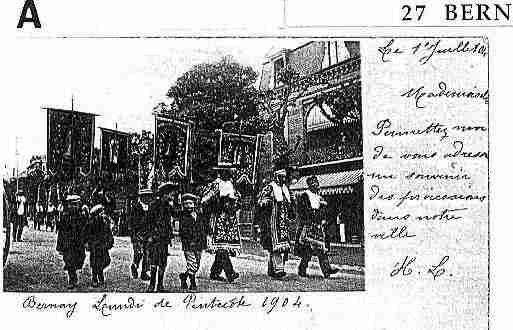 A
27 BERN
Le 1er Juillet 04
Mademois
Permettez moi
de vous adress
un souvenir
des processions
dans notre
ville
H. L.
Bernay Lundi de Pentecôte 1904.